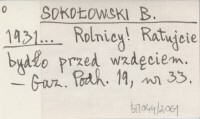 SOKOŁOWSKI B.
1931... Rolnicy! Ratujcie
bydło przed wzdęciem.
— Gaz. Podh. 19, nr 33.